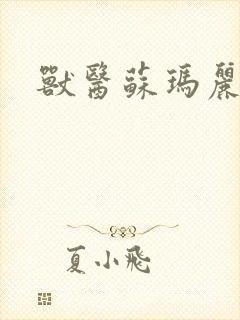 獸醫蘇瑪麗
夏小飛